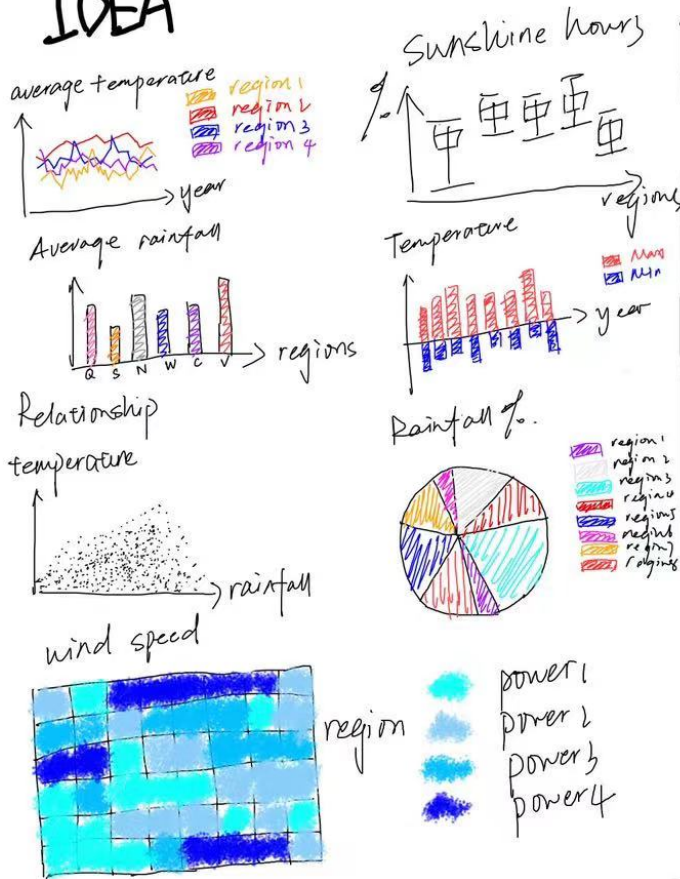 IDEA
average temperature
region 1
region 2
region 3
region 4
year
Sunshine hours
%
regions
Average rainfall
Q S N W C V
regions
Temperature
Max
Min
year
Relationship
temperature
rainfall
Rainfall %.
region 1
region 2
region 3
region 4
region 5
region 6
region 7
region 8
wind speed
region
power 1
power 2
power 3
power 4